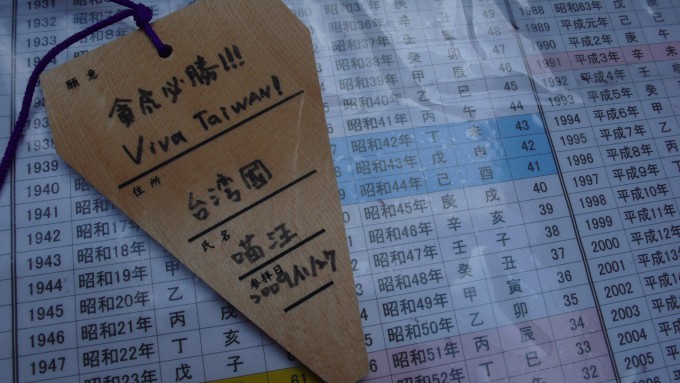 願意
必勝!!!
Viva TAIWAN!
住所
台湾國
氏名
喵汪
参拝日
2009/11/27
1931 昭和
1932
1939
1940
1941
1942 昭和17年
1943 昭和18年
1944 昭和19年 甲
1945 昭和20年 乙
1946 昭和21年 丙 戌
1947 昭和22年 丁 亥
昭和23年 戊 子 61
昭和36年 辛 丑
昭和38年 癸 卯
昭和39年 甲 辰 46
昭和40年 乙 巳 45
昭和41年 丙 午 44
昭和42年 丁 未 43
昭和43年 戊 申 42
昭和44年 己 酉 41
昭和45年 庚 戌 40
昭和46年 辛 亥 39
昭和47年 壬 子 38
昭和48年 癸 丑 37
昭和49年 甲 寅 36
昭和50年 乙 卯 35
昭和51年 丙 辰 34
昭和52年 丁 巳 33
1989 平成元年 己
1990 平成2年 庚
1991 平成3年 辛 未
1992 平成4年 壬
1993 平成5年 癸
1994 平成6年 甲
1995 平成7年 乙
1996 平成8年 丙
1997 平成9年 丁
1998 平成10年
1999 平成11年
2000 平成12年
2001 平成13
2002 平成14
2003 平成
2004 平成
2005 平成
2006